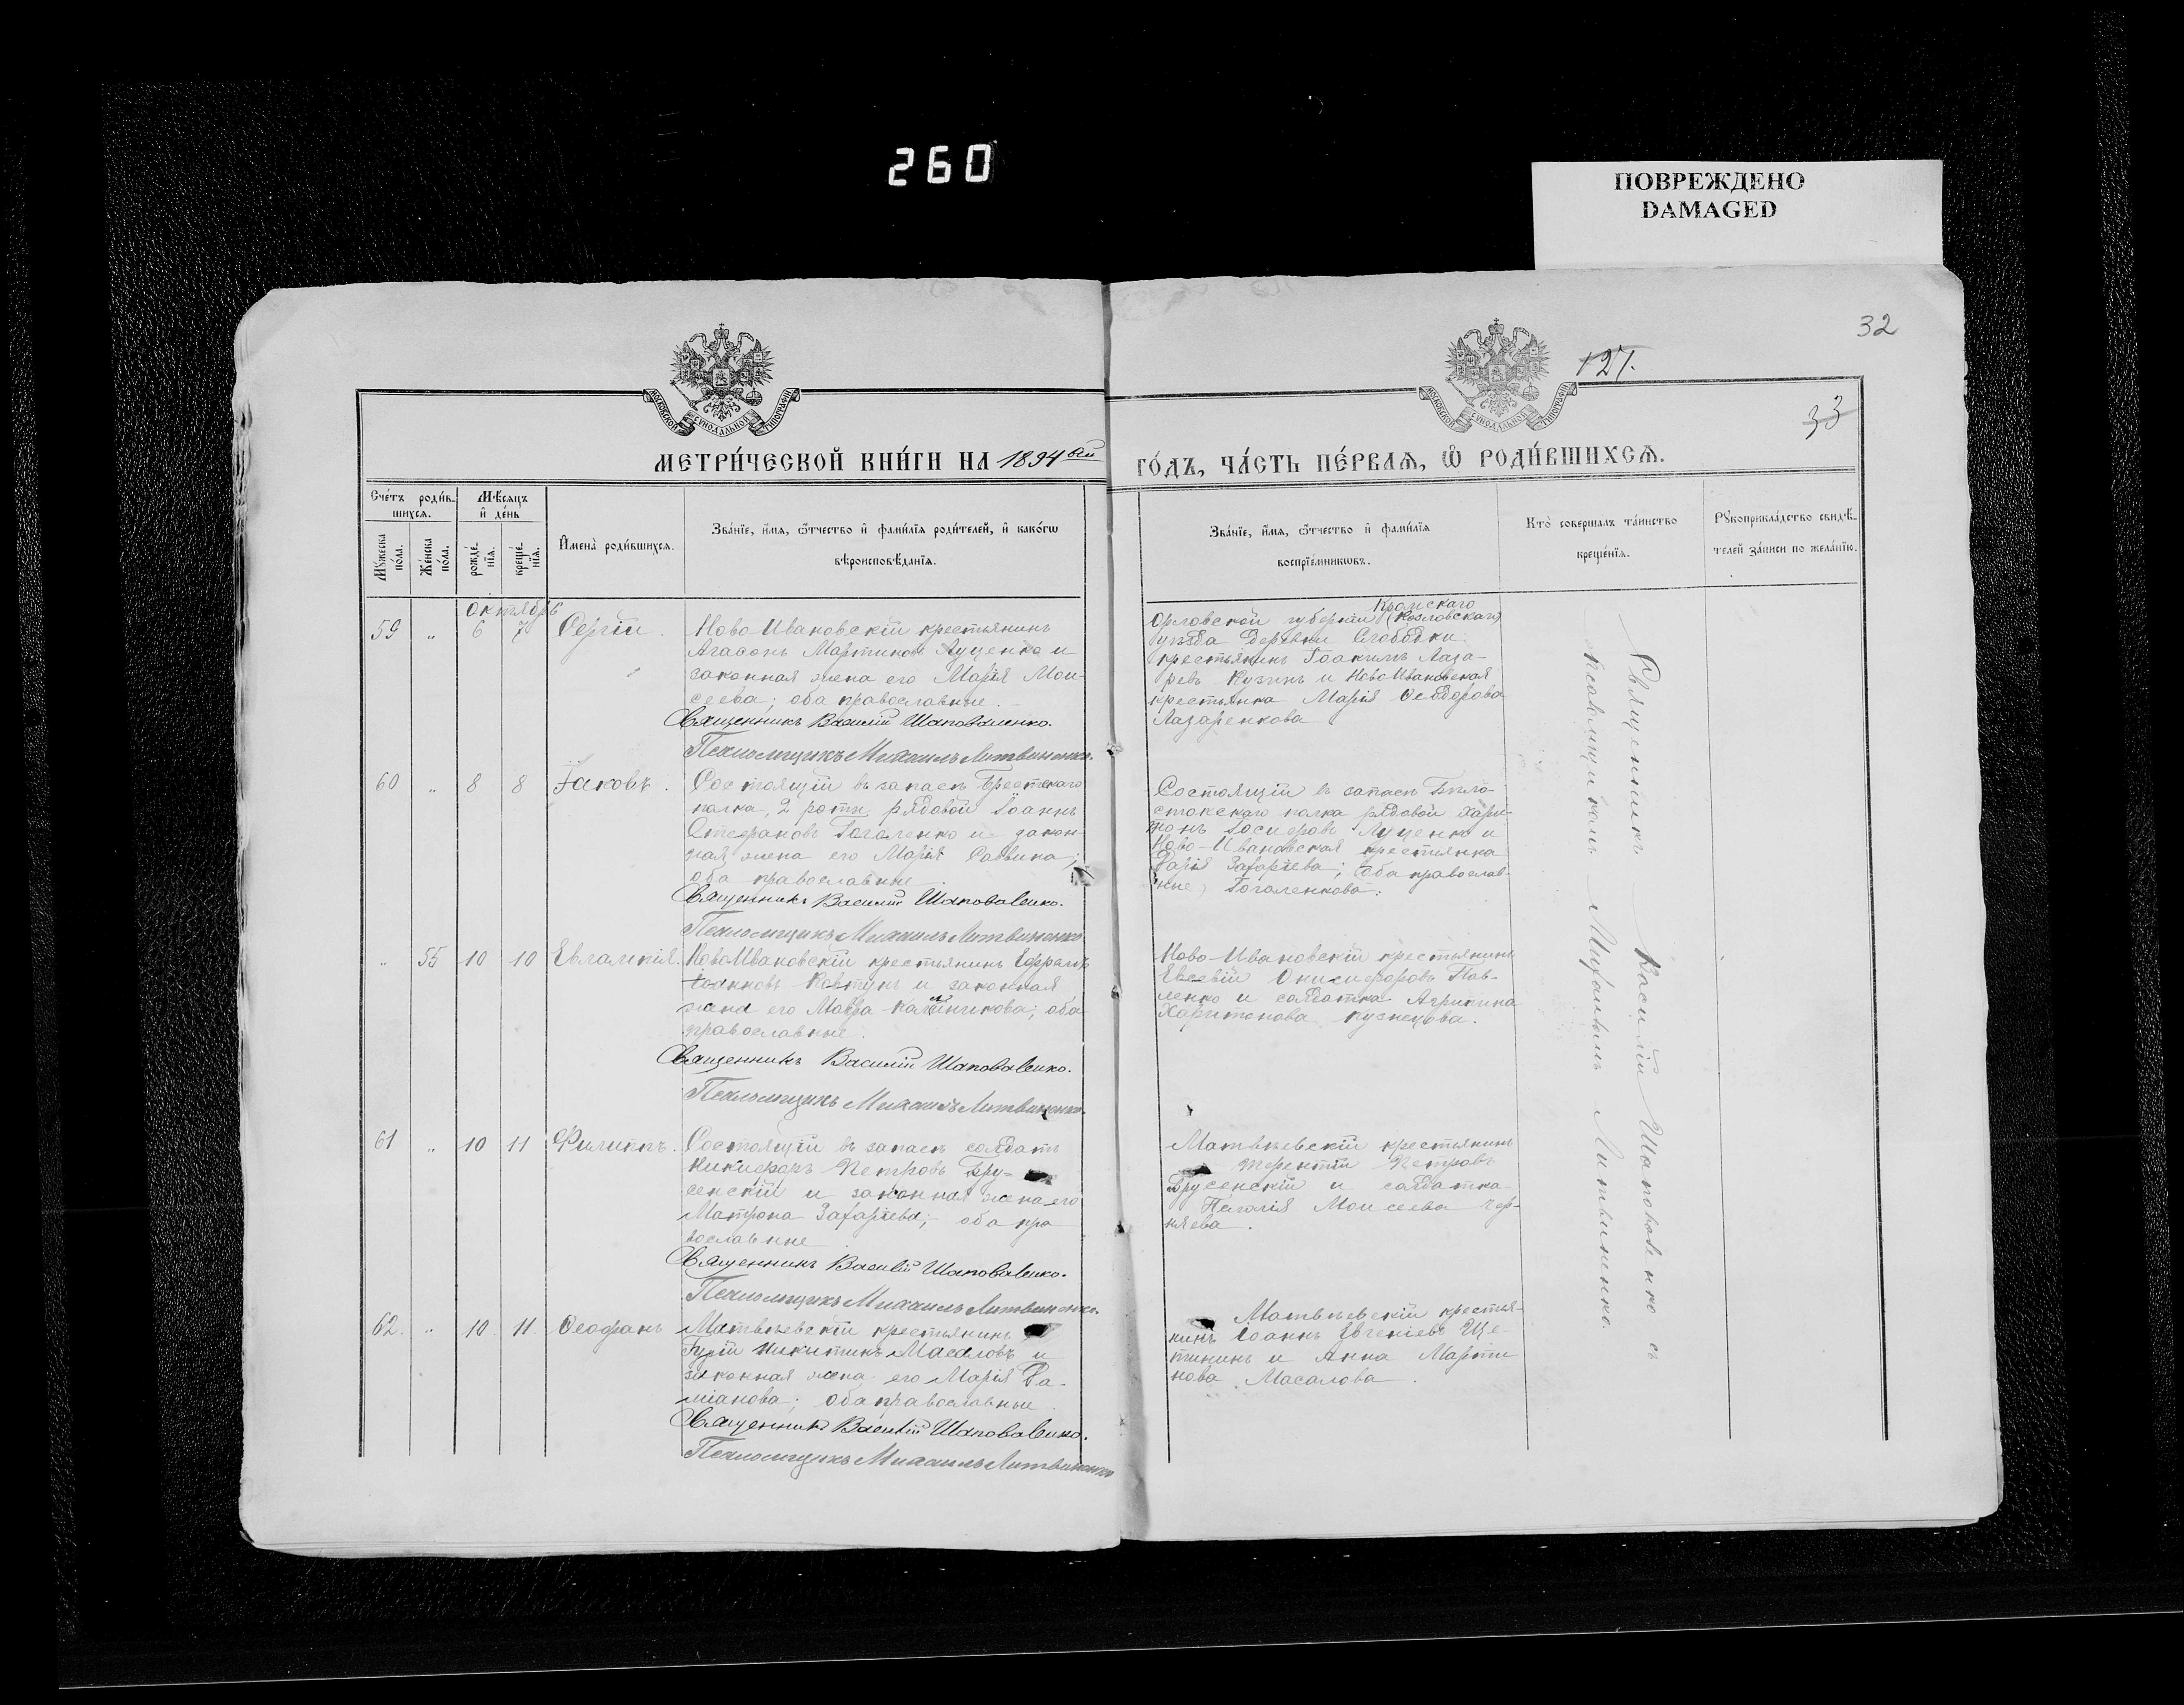 260
ПОВРЕЖДЕНО
DAMAGED
32
127.
33
МОСКОВСКОЙ СѴНОДАЛЬНОЙ ТИПОГРАФІИ
МОСКОВСКОЙ СѴНОДАЛЬНОЙ ТИПОГРАФІИ
МЕТРИ́ЧЕСКОЙ КНИ́ГИ НА 1894ый
ГО́ДЪ, ЧА́СТЬ ПЕ́РВАѦ, Ѡ҆ РОДИ́ВШИХСѦ.
Сче́тъ роди́в-
шихсѧ.
Мѣ́сѧцъ
и҆ де́нь
Мꙋ́жеска
по́ла.
Же́нска
по́ла.
рожде́-
нїѧ.
креще́-
нїѧ.
И҆мена̀ роди́вшихсѧ.
Зва́нїе, и҆́мѧ, ѻ҆́тчество и҆ фами́лїѧ роди́телей, и҆ како́гѡ
вѣроисповѣ́данїѧ.
Зва́нїе, и҆́мѧ, ѻ҆́тчество и҆ фами́лїѧ
воспрїе́мникѡвъ.
Кто̀ соверша́лъ та́инство
креще́нїѧ.
Рꙋкоприкла́дство свидѣ́-
телей за́писи по жела́нїю.
Октябрь
59 „ 6 7 Сергій.
Ново-Ивановскій крестьянинъ
Агафонъ Мартиновъ Луценко и
законная жена его Марія Мои-
сеева; оба православные.
Священникъ Василій Шаповаленко.
Псаломщикъ Михаилъ Литвиненко.
Кромскаго
Орловской губерніи (Козловскаго)
уѣзда деревни Слободки
крестьянинъ Іоакимъ Лаза-
ревъ Кузинъ и Ново-Ивановская
крестьянка Марія Ѳеодорова
Лазаренкова
60 „ 8 8 Іаковъ.
Состоящій въ запасѣ Брестскаго
полка, 2 роты рядовой Іоаннъ
Стефановъ Гогаленко и закон-
ная жена его Марія Саввина;
оба православные.
Священникъ Василій Шаповаленко.
Псаломщикъ Михаилъ Литвиненко.
Состоящій въ запасѣ Бѣло-
стокскаго полка рядовой Хари-
тонъ Іосифовъ Луценко и
Ново-Ивановская крестьянка
Дарія Захаріева; оба православ-
ные, Гогаленкова.
„ 55 10 10 Евлампія.
Ново-Ивановскій крестьянинъ Ефремъ
Іоанновъ Ковтунъ и законная
жена его Мавра Калинникова; оба
православные.
Священникъ Василій Шаповаленко.
Псаломщикъ Михаилъ Литвиненко.
Ново-Ивановскій крестьянинъ
Евсевій Онисифоровъ Пав-
ленко и солдатка Агрипина
Харитонова Кузнецова.
61 „ 10 11 Филиппъ.
Состоящій въ запасѣ солдатъ
Никифоръ Петровъ Бру-
сенскій и законная жена его
Матрона Захаріева; оба пра
вославные
Священникъ Василій Шаповаленко.
Псаломщикъ Михаилъ Литвиненко.
Матвѣевскій крестьянинъ
Терентій Петровъ
Брусенскій и солдатка
Пелагія Моисеева Чер-
няева.
62. „ 10 11 Ѳеофанъ
Матвѣевскій крестьянинъ
Гурій Никитинъ Масаловъ и
законная жена его Марія Да-
міанова; оба православные.
Священникъ Василій Шаповаленко.
Псаломщикъ Михаилъ Литвиненко
Матвѣевскій крестья-
нинъ Іоаннъ Евгеніевъ Ще-
тининъ и Анна Марти
нова Масалова.
Священникъ Василій Шаповаленко съ
псаломщикомъ Михаиломъ Литвиненко.